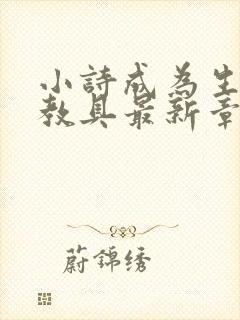 小詩成為生
教具最新章
蔚錦绣